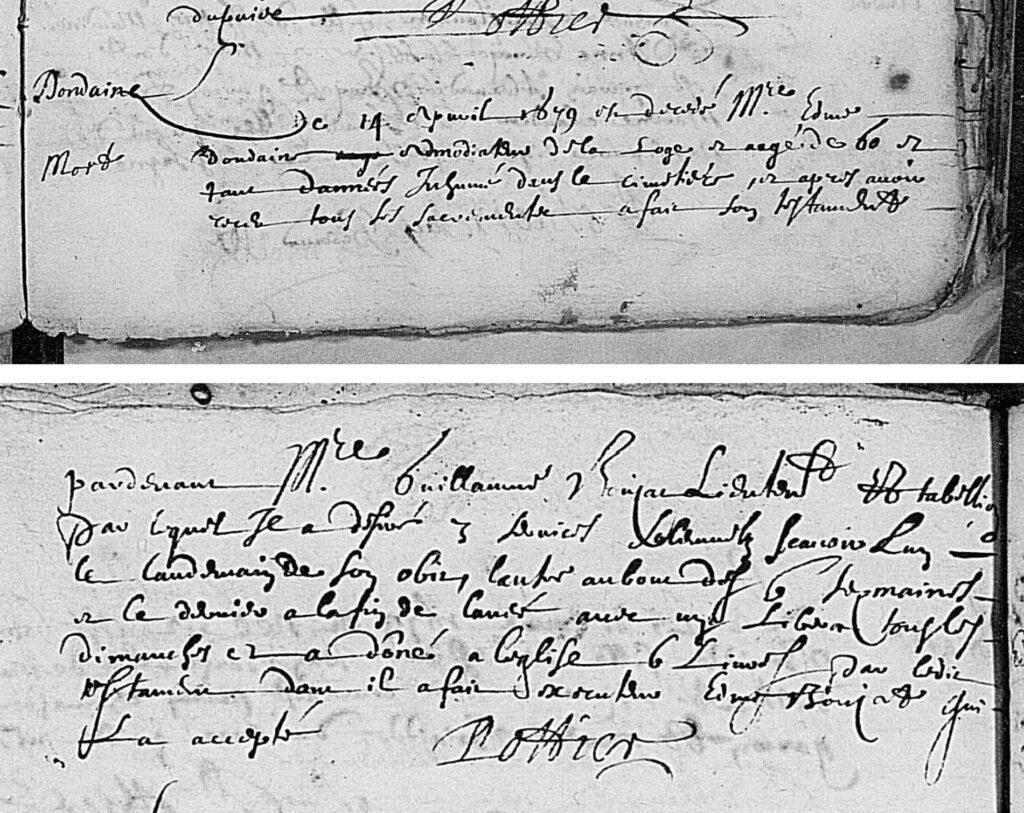 dupuise
Pothier
Dondaine
Ce 14 Apvril 1679 est decedé Mre Edme
Mort
Dondaine admodiateur de la Loge et aagé de 60 et
tant dannées Inhumé dans le cimetiere, et apres avoir
receu tous ses sacrements a fait son testament
pardevant Mre Guillaume Lieutent et tabellion
par lequel Il a desiré 3 services solennels scavoir Lun
le landemain de son obit, lautre au bout des 6 sepmaines
et le dernier a la fin de lanné avec un Libera tous les
dimanches et a doné a leglise 6 Livres par ledit
testament dont il a fait executeur Edme Boujat qui
La accepté
Pothier